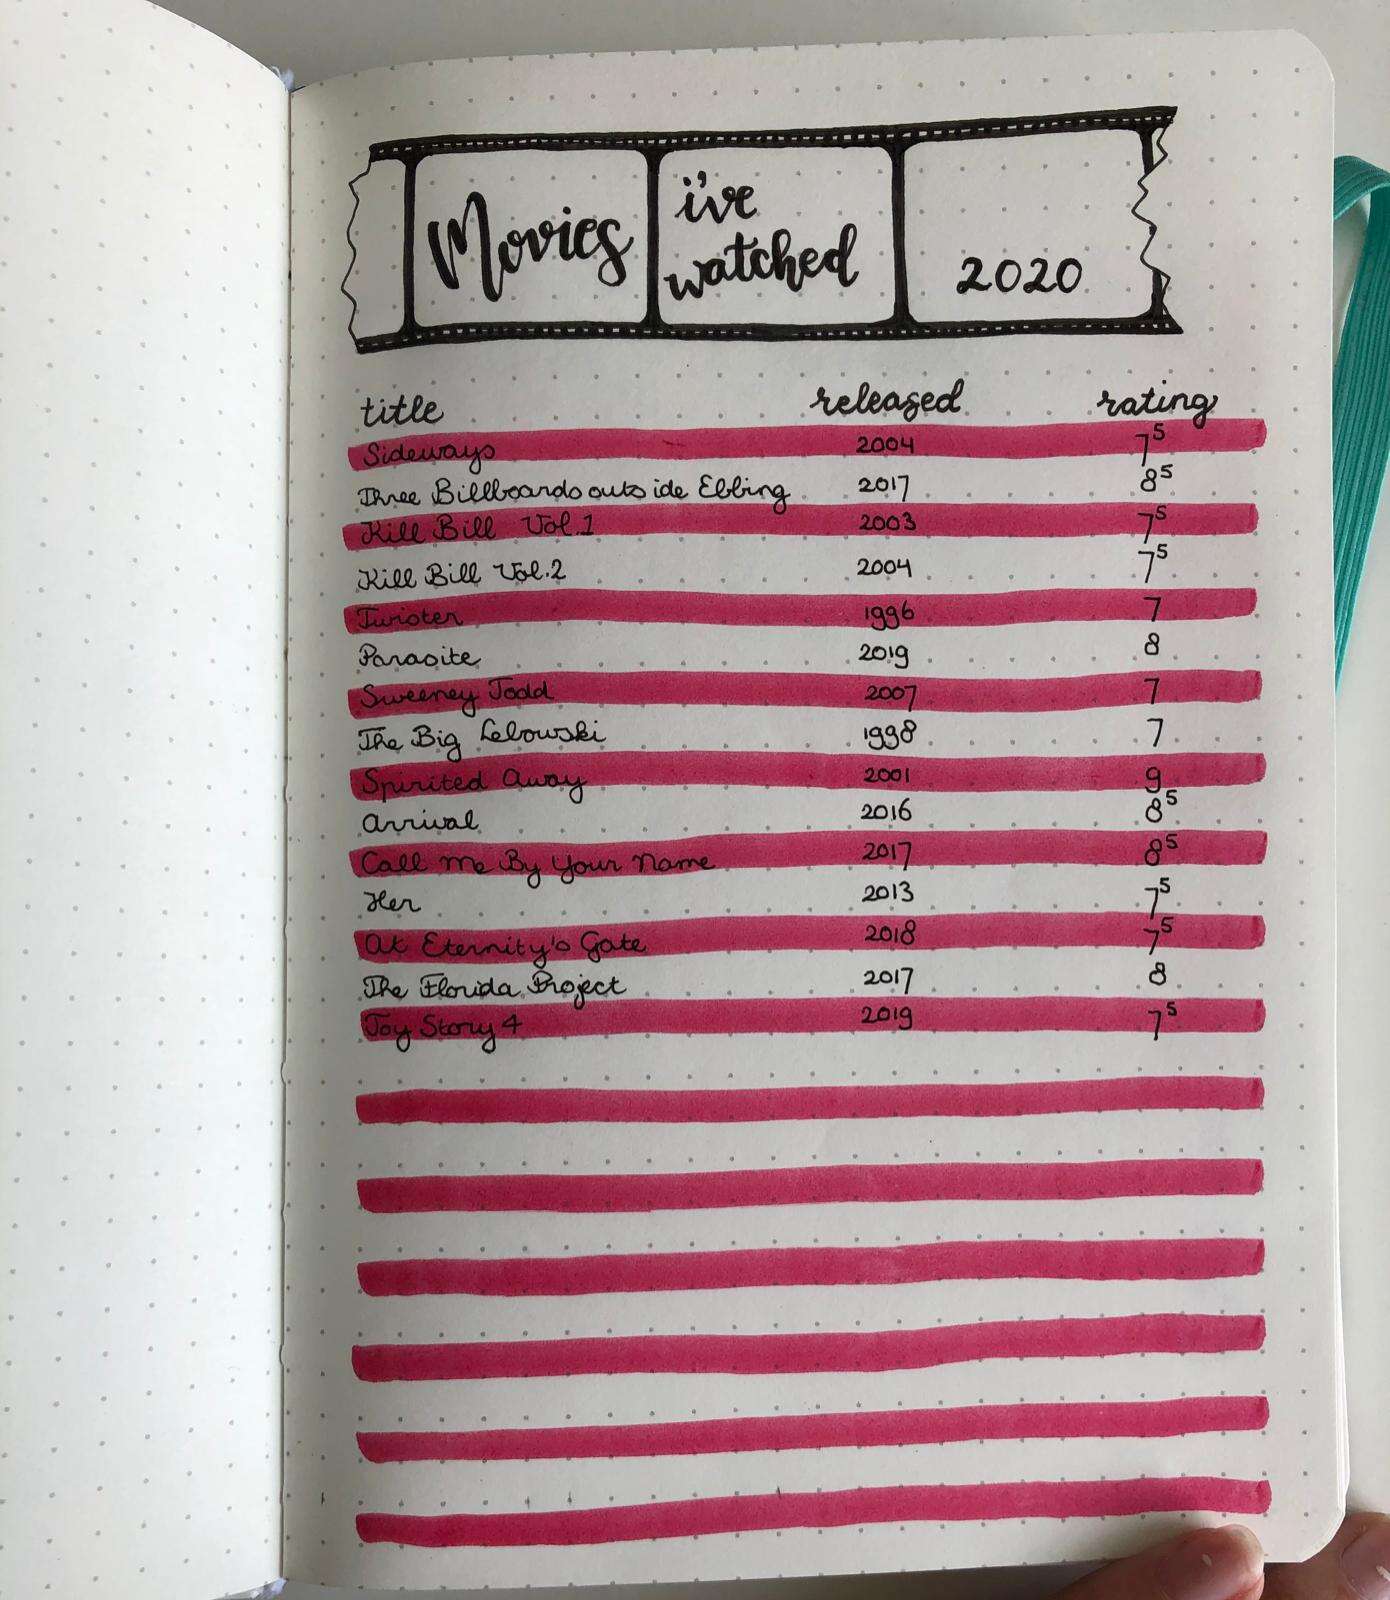 Movies i've watched 2020
title released rating
Sideways 2004 7⁵
Three Billboards outside Ebbing 2017 8⁵
Kill Bill Vol.1 2003 7⁵
Kill Bill Vol.2 2004 7⁵
Twister 1996 7
Parasite 2019 8
Sweeney Todd 2007 7
The Big Lebowski 1998 7
Spirited Away 2001 9
Arrival 2016 8⁵
Call Me By Your Name 2017 8⁵
Her 2013 7⁵
At Eternity's Gate 2018 7⁵
The Florida Project 2017 8
Toy Story 4 2019 7⁵